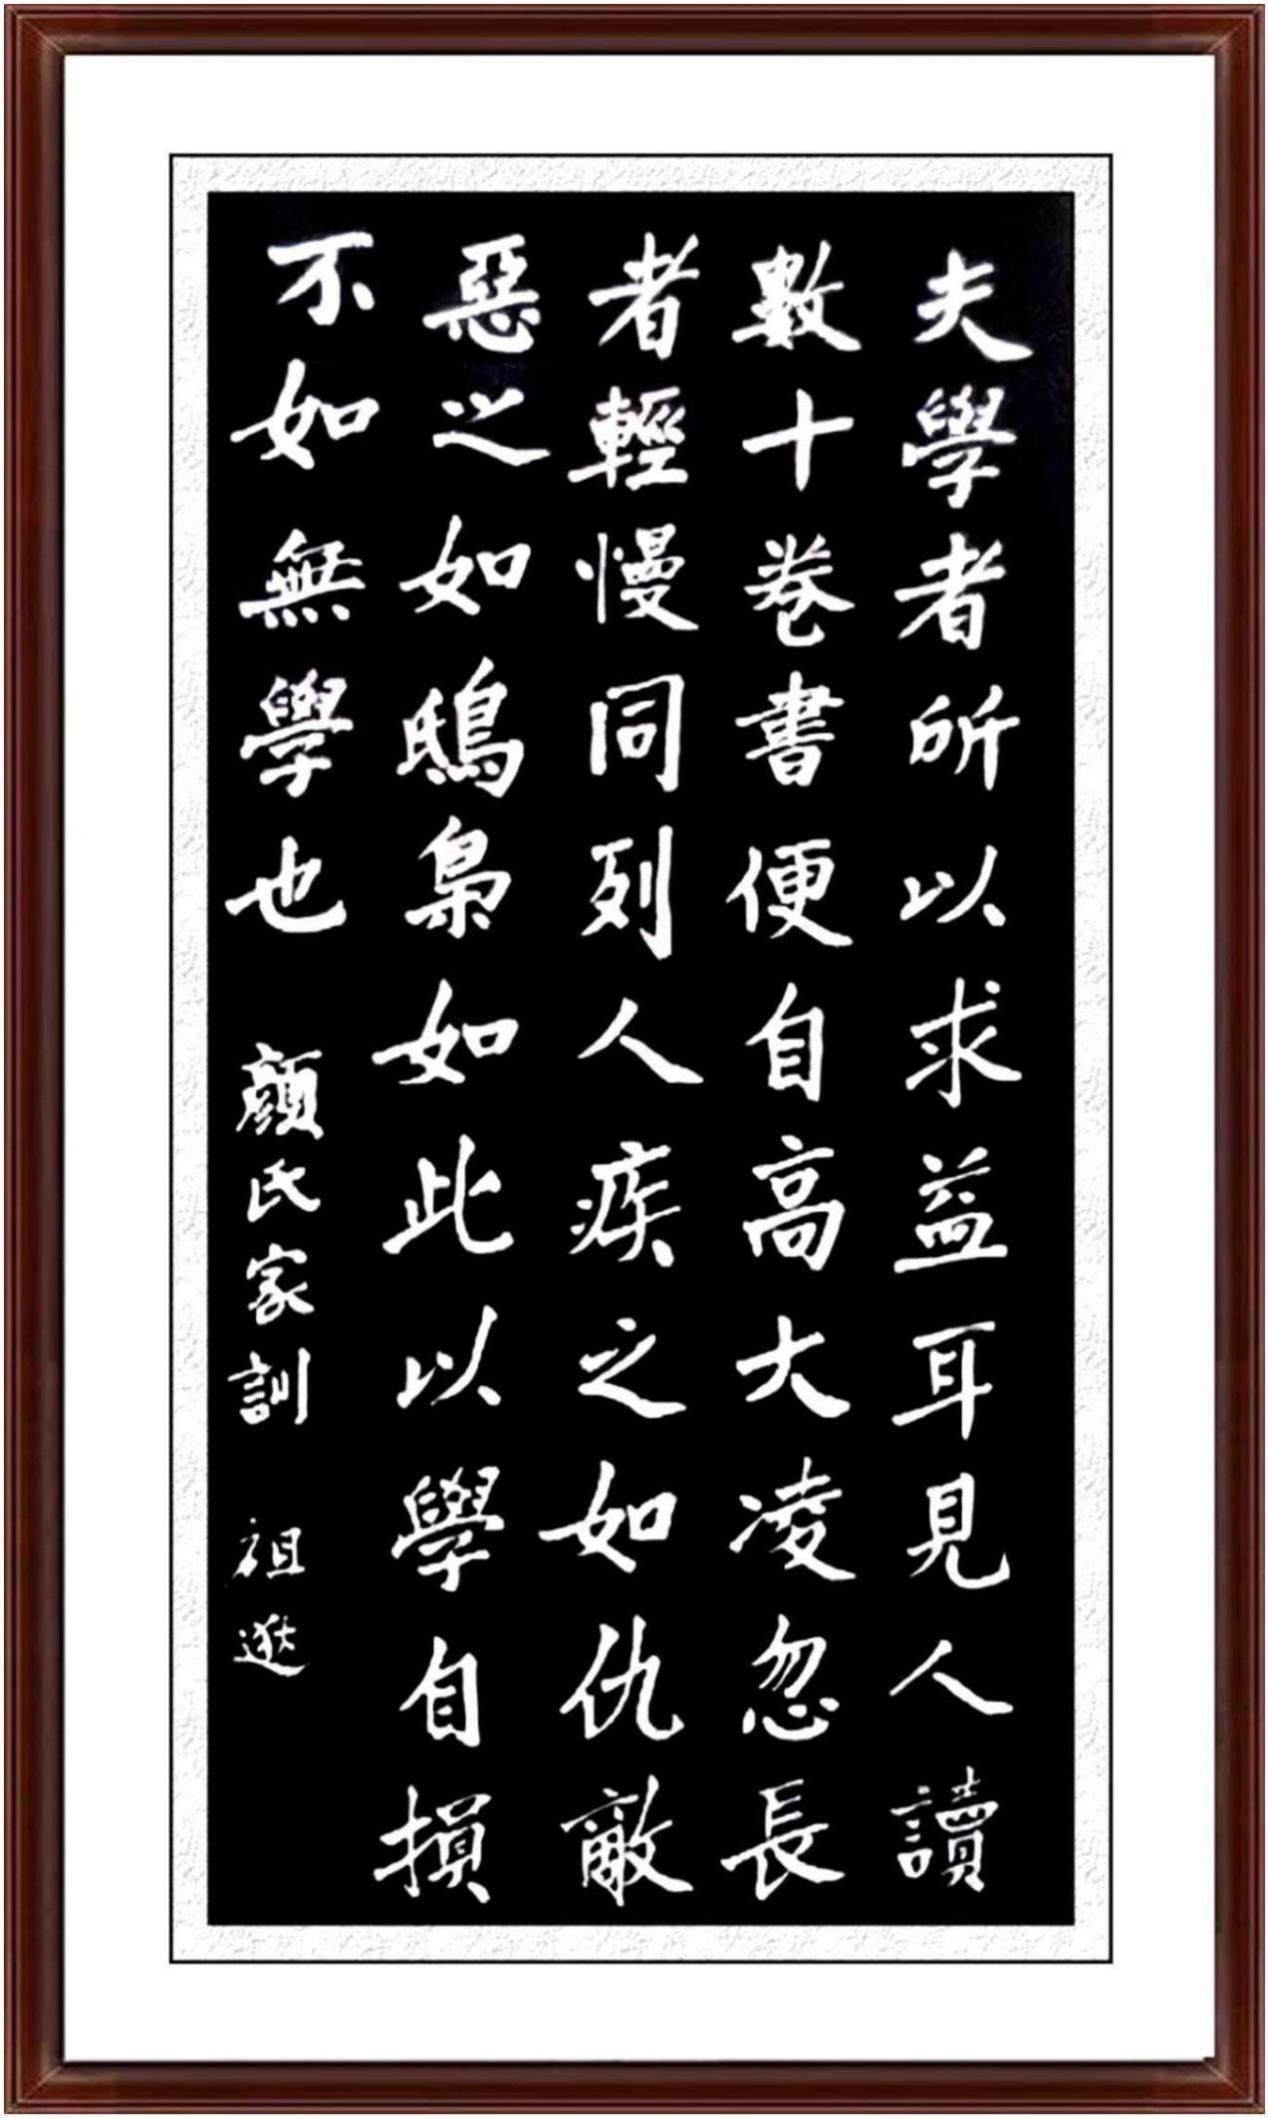 夫學者所以求益耳見人讀
數十卷書便自高大凌忽長
者輕慢同列人疾之如仇敵
惡之如鴟梟如此以學自損
不如無學也 顏氏家訓 祖逖